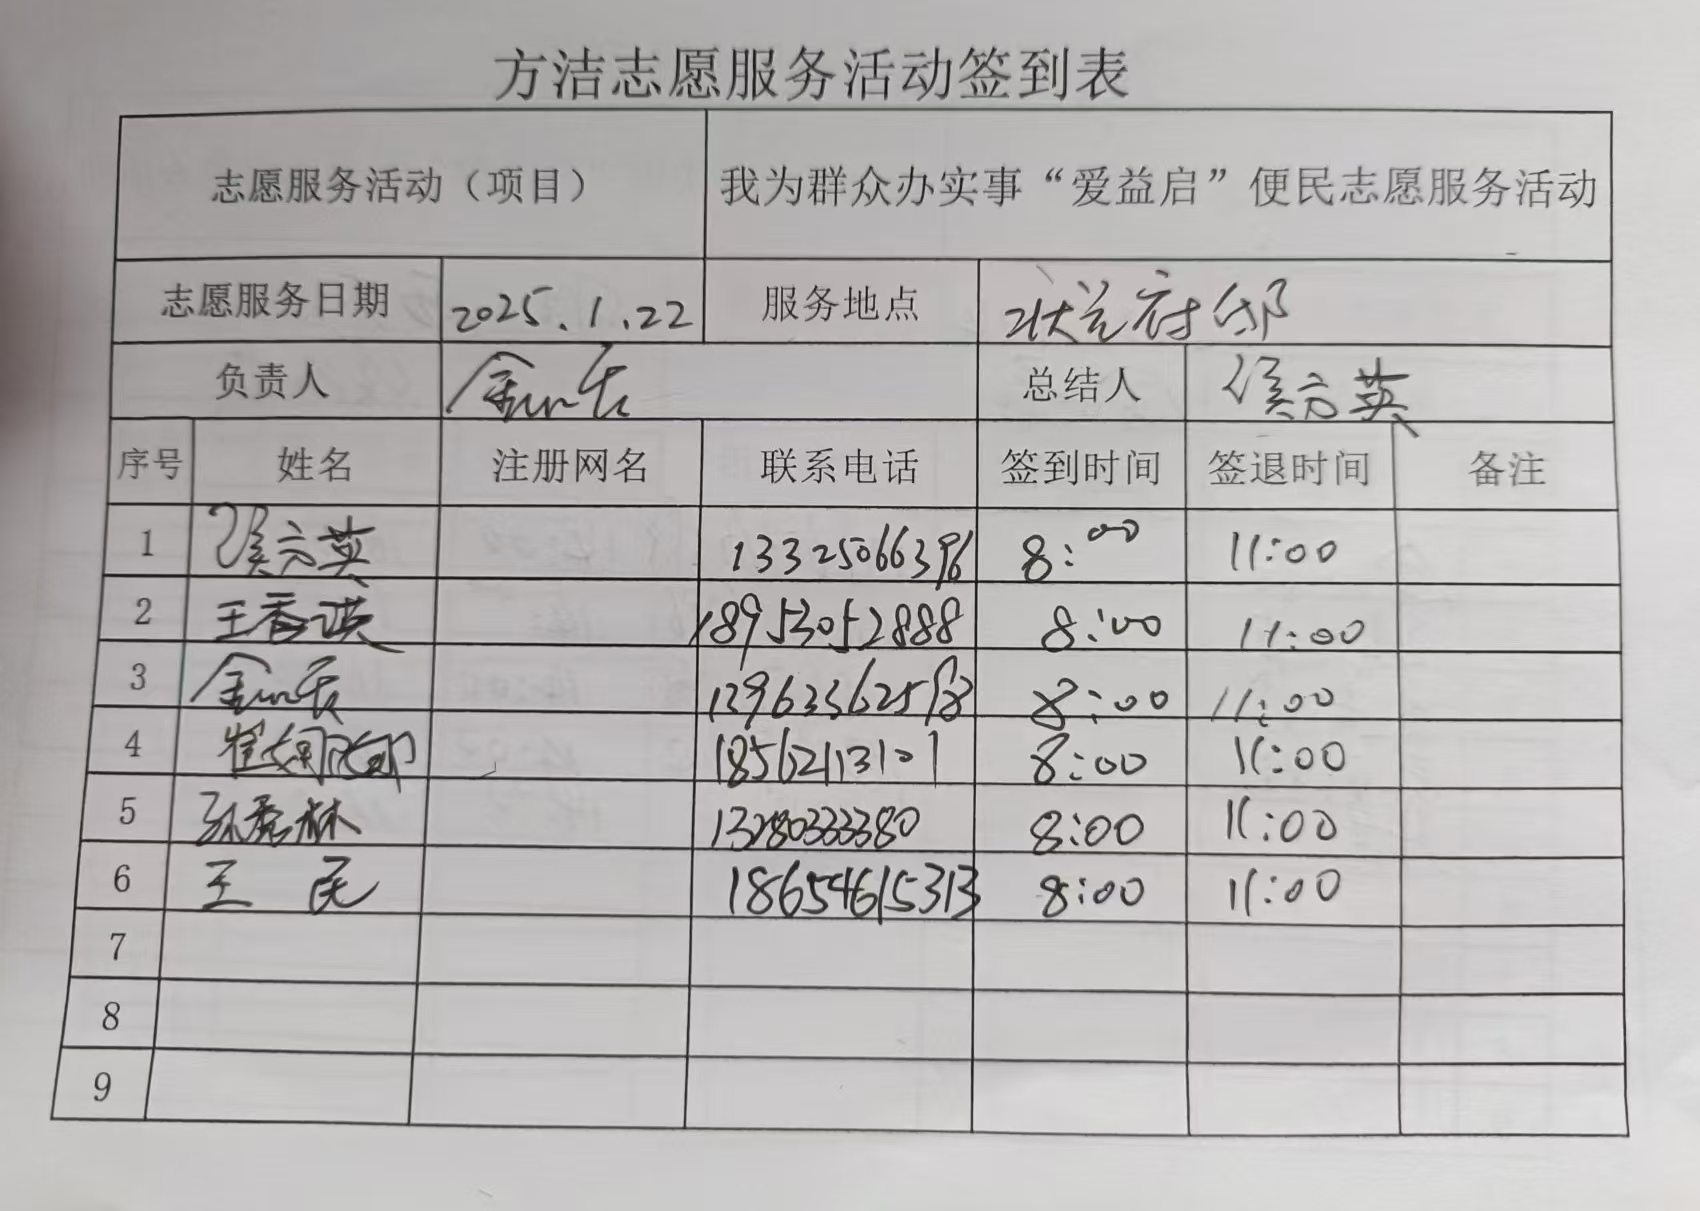 方洁志愿服务活动签到表
志愿服务活动（项目） 我为群众办实事“爱益启”便民志愿服务活动
志愿服务日期 2025.1.22 服务地点 状元府邸
负责人 总结人 侯方英
序号 姓名 注册网名 联系电话 签到时间 签退时间 备注
1 侯方英 13325066396 8:00 11:00
2 王香谈 18953052888 8:00 11:00
3 13963362598 8:00 11:00
4 18562113101 8:00 11:00
5 13280333380 8:00 11:00
6 王民 18654615313 8:00 11:00
7
8
9